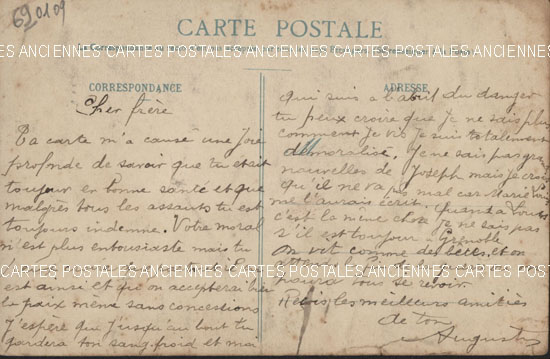 690109
CARTE POSTALE
CARTES POSTALES ANCIENNES CARTES POSTALES ANCIENNES CARTES POSTALES ANCIENNES
CORRESPONDANCE
Cher frère
Ta carte m'a causé une joie
profonde de savoir que tu étais
toujour en bonne santé et que
malgrès tous les assauts tu est
toujours indemne. Votre moral
n'est plus entousiaste mais tu
est ainsi et que on accepterai bien
la paix même sans concessions
J'espère que jusqu'au bout tu
gardera ton sang froid et moi
ADRESSE
qui suis a l'abri du danger
tu peux croire que je ne sais plus
comment je vis je suis totalement
démoralisé. Je ne sais pas
nouvelles de Joseph mais je crois
qu'il ne va pas mal car Marie
me l'aurais écrit. Quand a
c'est la même chose je ne sais pas
s'il est toujour a Grenoble
On vit comme des bêtes, et on
se revoir.
Reçois les meilleurs amitiés
de ton
Auguste
CARTES POSTALES ANCIENNES CARTES POSTALES ANCIENNES CARTES POSTALES